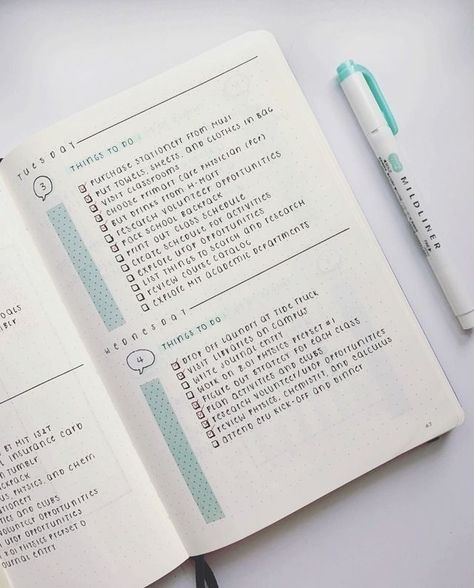 TUESDAY
3
THINGS TO DO
PURCHASE STATIONERY FROM MUJI
PUT TOWELS, SHEETS, AND CLOTHES IN BAG
VISIT CLASSROOMS
CHOOSE PRIMARY CARE PHYSICIAN (PCP)
BUY DRINKS FROM H-MART
RESEARCH VOLUNTEER OPPORTUNITIES
PACK SCHOOL BACKPACK
PRINT OUT CLASS SCHEDULE
CREATE SCHEDULE FOR ACTIVITIES
EXPLORE UROP OPPORTUNITIES
LIST THINGS TO SEARCH AND RESEARCH
REVIEW COURSE CATALOG
EXPLORE MIT ACADEMIC DEPARTMENTS
WEDNESDAY
4
THINGS TO DO
DROP OFF LAUNDRY AT TIDE TRUCK
VISIT LIBRARIES ON CAMPUS
WRITE JOURNAL ENTRY
WORK ON 8.01 PHYSICS PREPSET #1
FIGURE OUT STRATEGY FOR EACH CLASS
PLAN ACTIVITIES AND CLUBS
RESEARCH VOLUNTEER/UROP OPPORTUNITIES
REVIEW PHYSICS, CHEMISTRY, AND CALCULUS
ATTEND CPU KICK-OFF AND DINNER
47
MILDLINER
OALS
BLR
BY MIT IS&T
INSURANCE CARD
TUMBLR
CKPACK
PHYSICS, AND CHEM
TATIONERY
TIES AND CLUBS
VOLUNTEER OPPORTUNITIES
UROP OPPORTUNITIES
8.01 PHYSICS PREPSET 0
OURNAL ENTRY